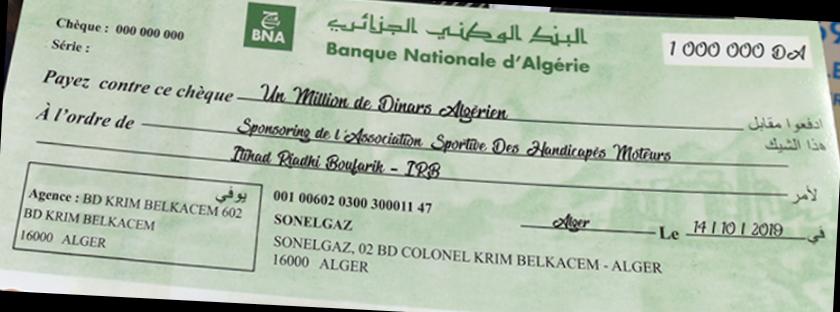 Chèque : 000 000 000
Série :
BNA
البنك الوطني الجزائري
Banque Nationale d'Algérie
1 000 000 DA
Payez contre ce chèque Un Million de Dinars Algérien ادفعوا مقابل
هذا الشيك
À l'ordre de Sponsoring de l'Association Sportive Des Handicapés Moteurs
Itihad Riadhi Boufarik - IRB لأمر
يوفي
Agence : BD KRIM BELKACEM 602
BD KRIM BELKACEM
16000 ALGER
001 00602 0300 300011 47
SONELGAZ
SONELGAZ, 02 BD COLONEL KRIM BELKACEM - ALGER
16000 ALGER
Alger Le 14 / 10 / 2019 في